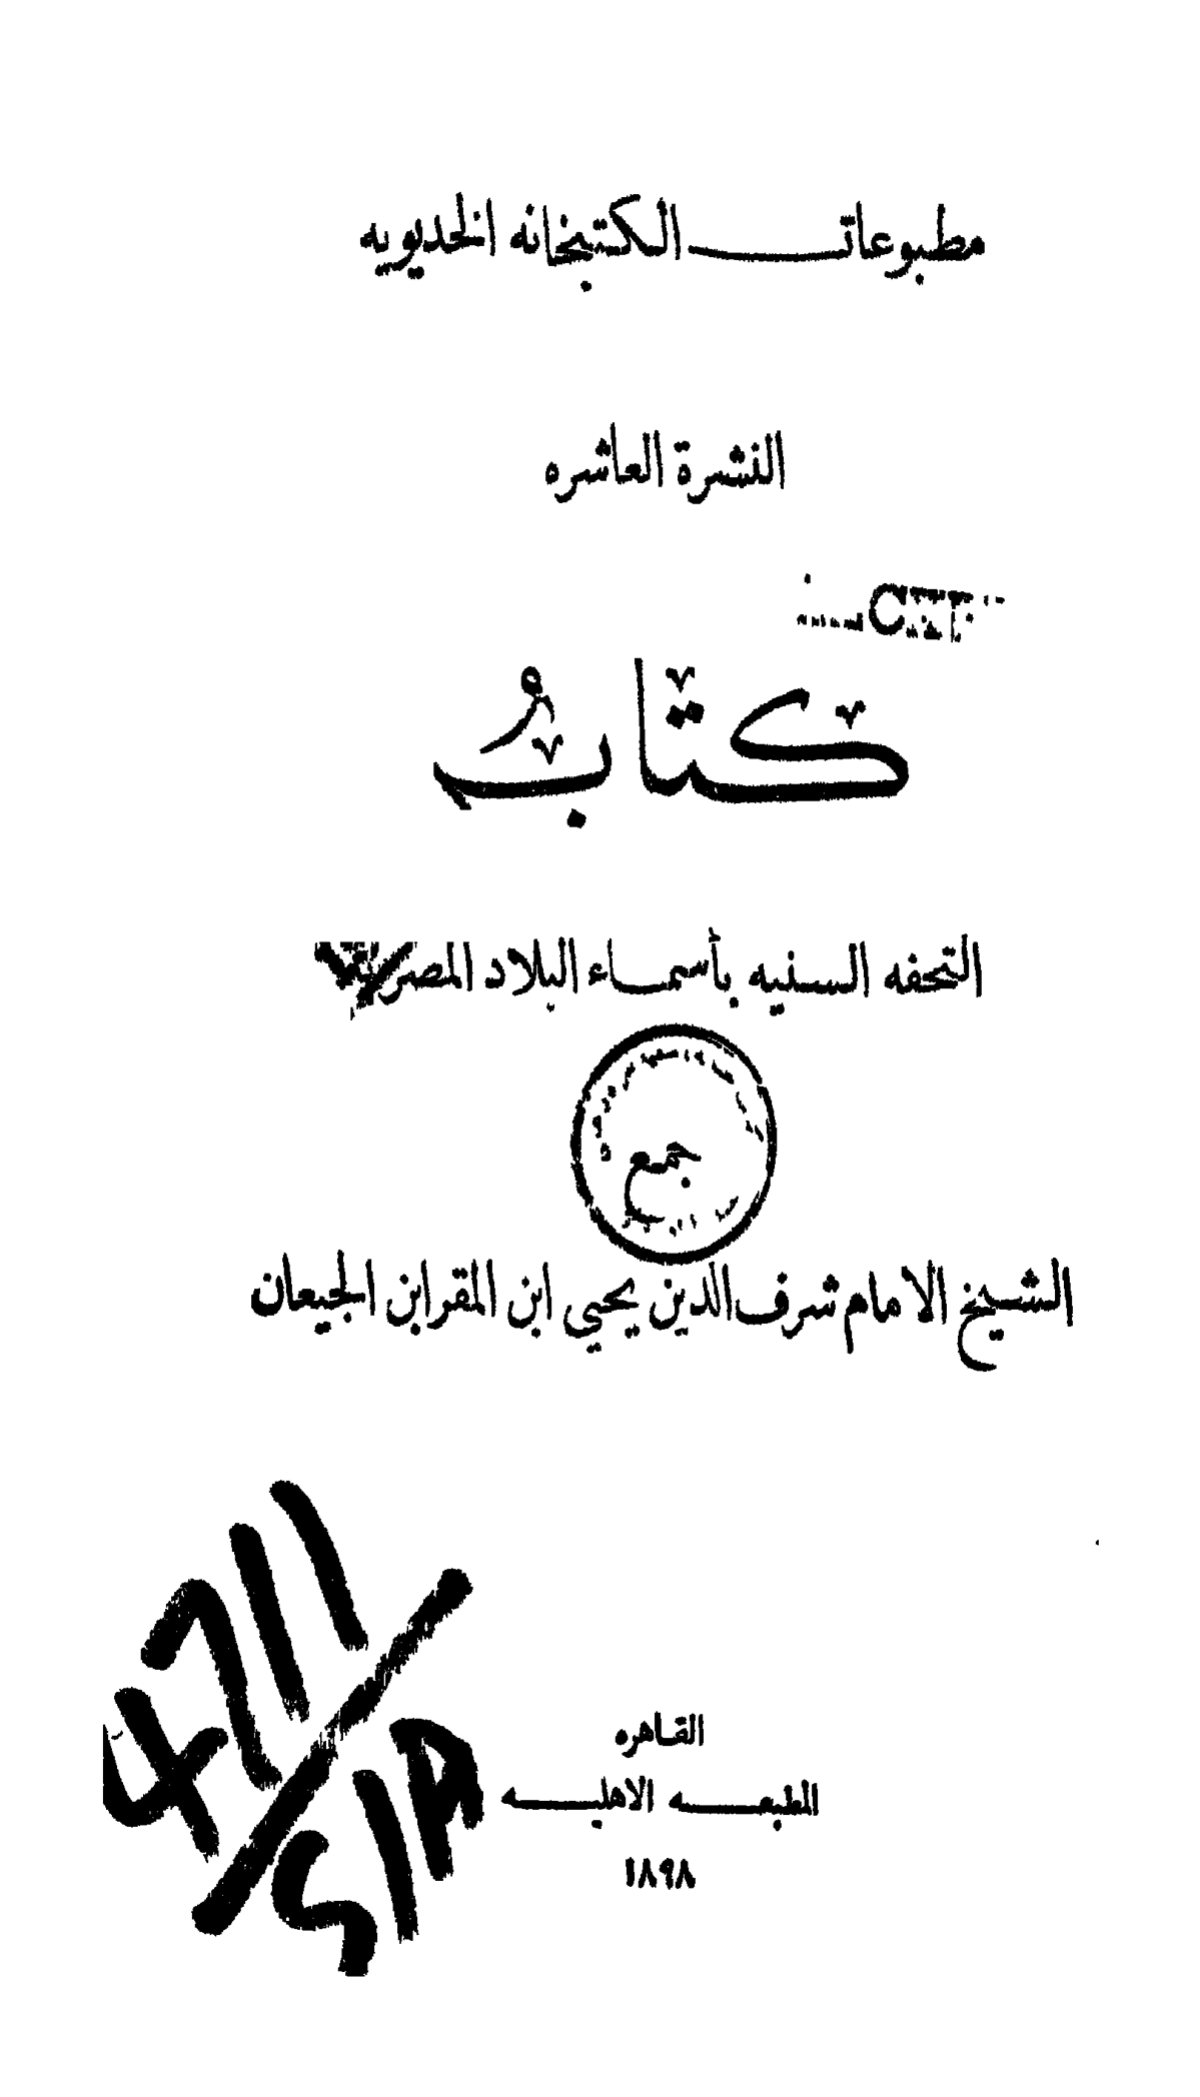 مطبوعات الكتبخانه الخديويه
النشرة العاشره
كتابُ
التحفه السنيه بأسماء البلاد المصريه
جمع
الشيخ الامام شرف الدين يحيي ابن المقر ابن الجيعان
4711
SIA
القاهره
المطبعه الاهليه
١٨٩٨